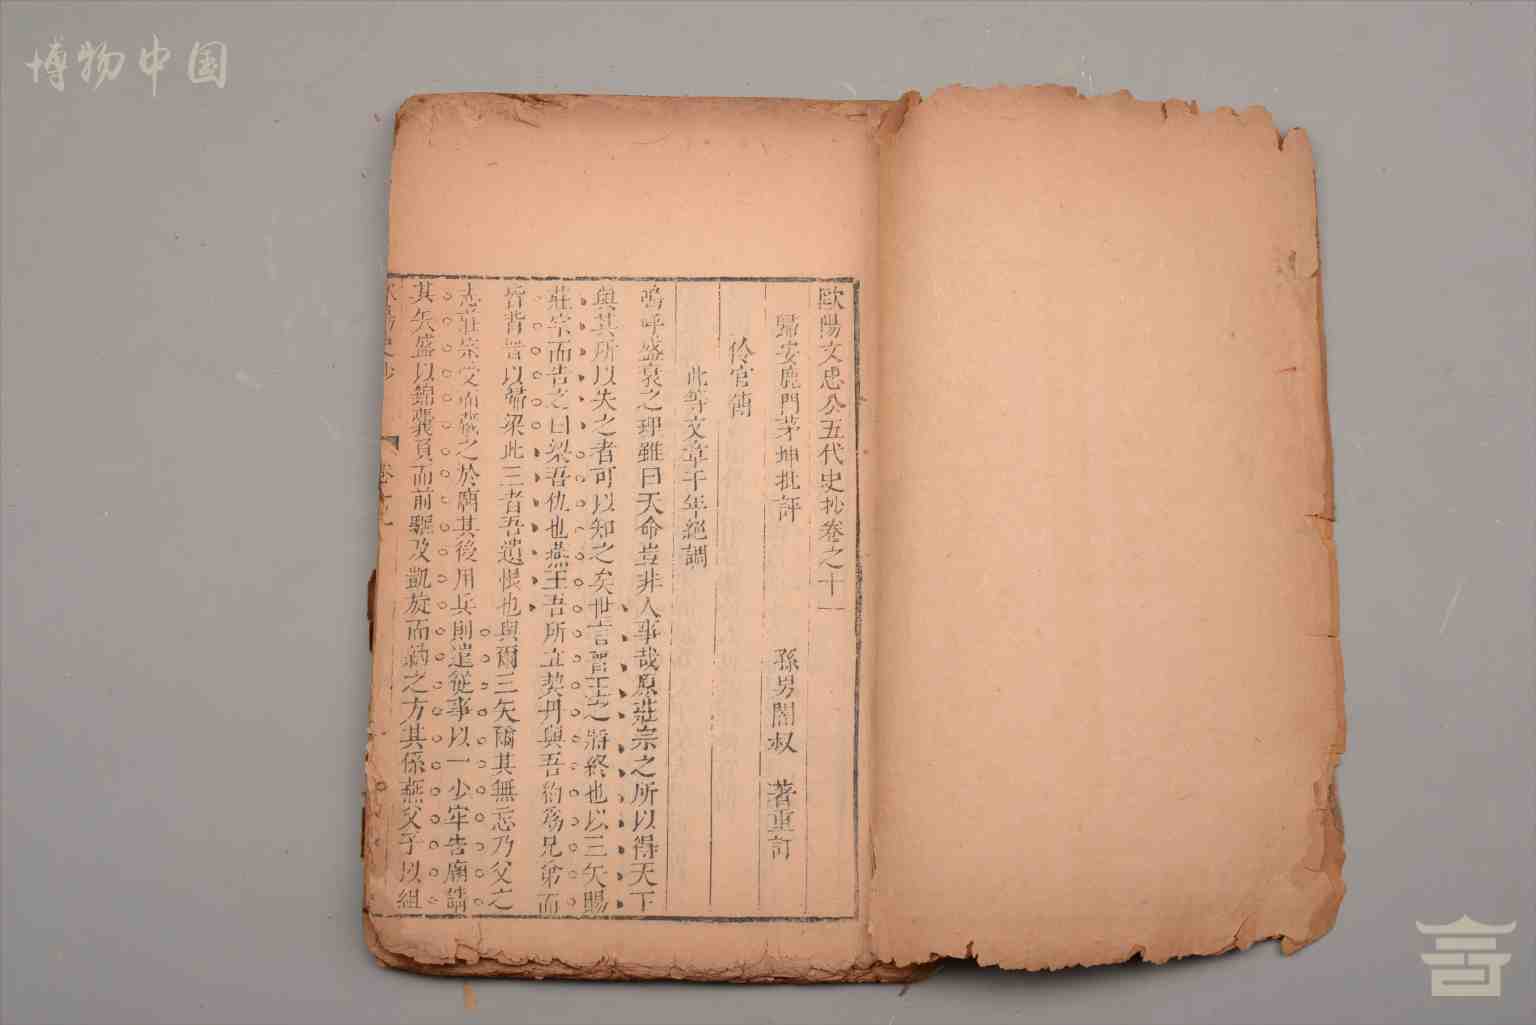 博物中国
歐陽文忠公五代史抄卷之十一
歸安鹿門茅坤批評 孫男闇叔 著重訂
伶官傳
此等文章千年絕調
嗚呼盛衰之理雖曰天命豈非人事哉原莊宗之所以得天下
與其所以失之者可以知之矣世言晉王之將終也以三矢賜
莊宗而告之曰梁吾仇也燕王吾所立契丹與吾約爲兄弟而
皆背晉以歸梁此三者吾遺恨也與爾三矢爾其無忘乃父之
志莊宗受而藏之於廟其後用兵則遣從事以一少牢告廟請
其矢盛以錦囊負而前驅及凱旋而納之方其係燕父子以組